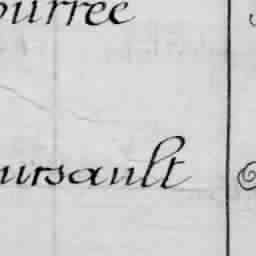 ourree
ursault